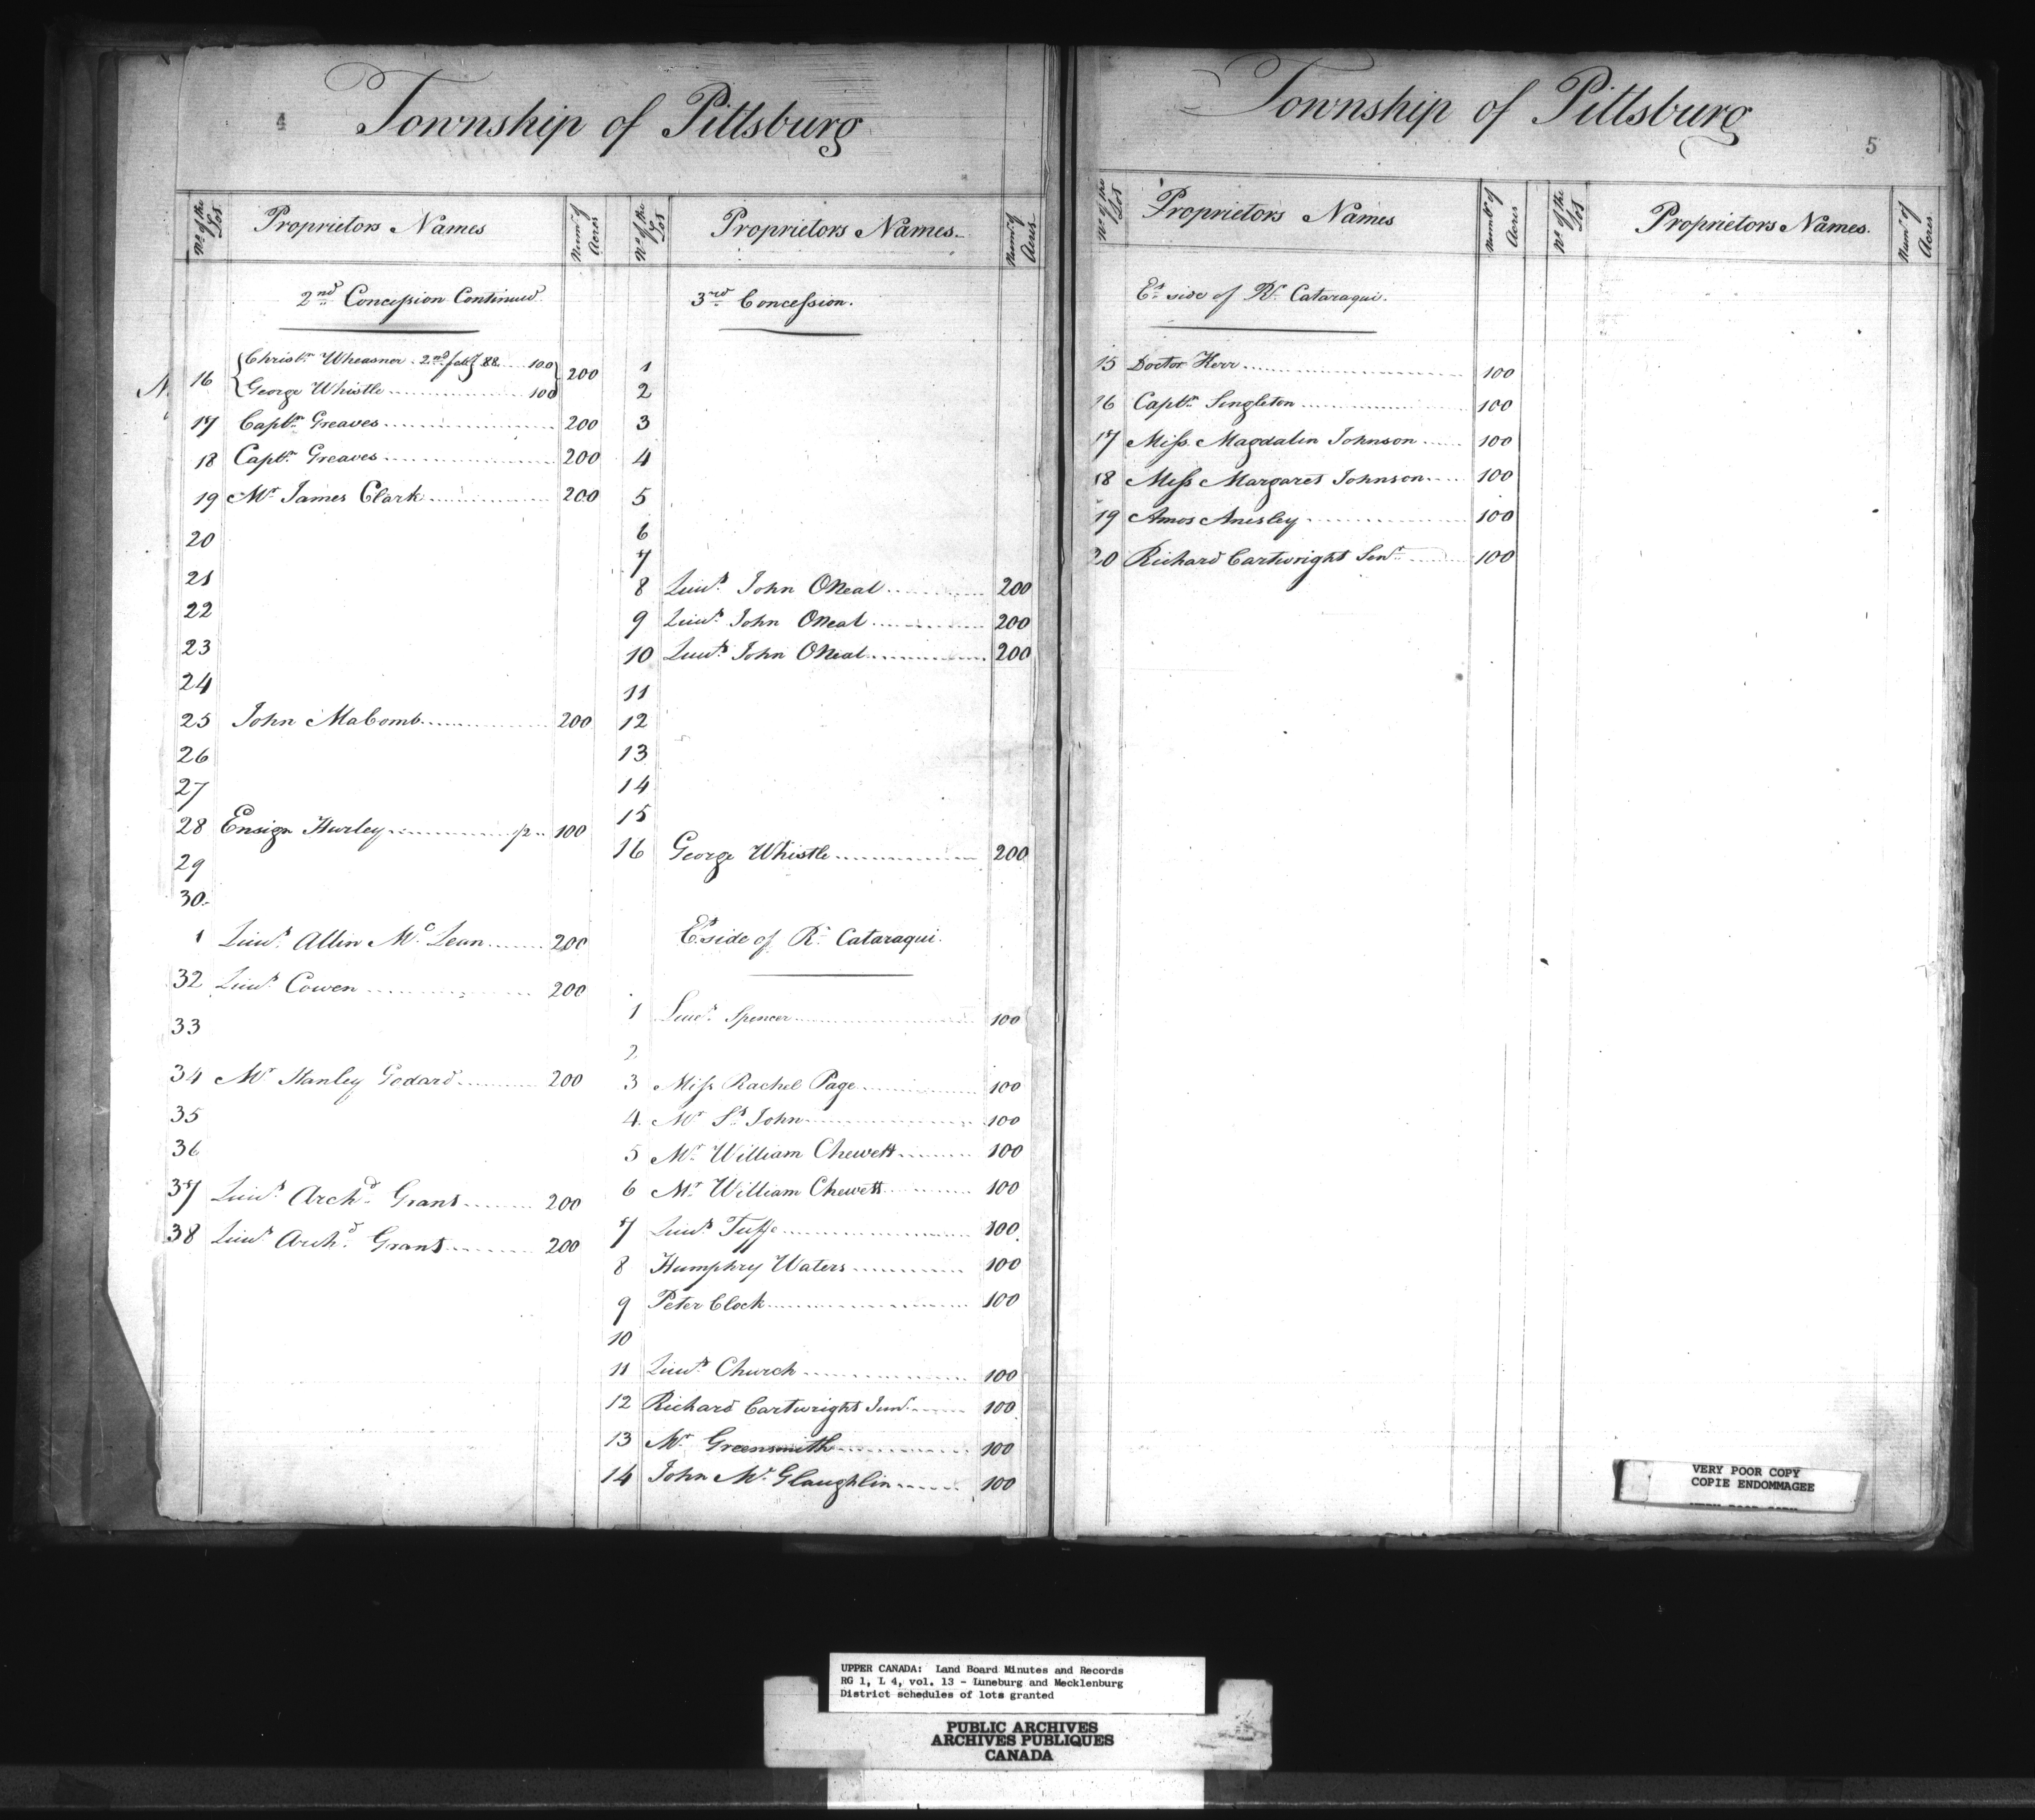 4
Township of Pittsburg
No. of the Lot
Proprietors Names
Numr. of Acres
2nd Concession Continued
16 Christn. Wheasner 2nd 88 100
George Whistle 100
200
17 Captn. Greaves 200
18 Captn. Greaves 200
19 Mr. James Clark 200
20
21
22
23
24
25 John Macomb 200
26
27
28 Ensign Hurley p 100
29
30
1 Lieut. Allin McLean 200
32 Lieut. Cowen 200
33
34 Mr. Stanley Godard 200
35
36
37 Lieut. Archd. Grant 200
38 Lieut. Archd. Grant 200
No. of the Lot
Proprietors Names
Numr. of Acres
3rd Concession.
1
2
3
4
5
6
7
8 Lieut. John ONeal 200
9 Lieut. John ONeal 200
10 Lieut. John ONeal 200
11
12
13
14
15
16 George Whistle 200
Et. side of Rr. Cataraqui.
1 Lieut. Spencer 100
2
3 Miss Rachel Page 100
4 Mr. St. John 100
5 Mr. William Chewett 100
6 Mr. William Chewett 100
7 Lieut. Tuffe 100
8 Humphry Waters 100
9 Peter Clock 100
10
11 Lieut. Church 100
12 Richard Cartwright Junr. 100
13 Mr. Greensmith 100
14 John McGlaughlin 100
Township of Pittsburg
5
No. of the Lot
Proprietors Names
Numbr. of Acres
No. of the Lot
Proprietors Names.
Numr. of Acres
Et. side of Rr. Cataraqui.
15 Doctor Kerr 100
16 Captn. Singleton 100
17 Miss Magdalin Johnson 100
18 Miss Margaret Johnson 100
19 Amos Ansley 100
20 Richard Cartwright Senr. 100
VERY POOR COPY
COPIE ENDOMMAGEE
UPPER CANADA: Land Board Minutes and Records
RG 1, L 4, vol. 13 - Luneburg and Mecklenburg
District schedules of lots granted
PUBLIC ARCHIVES
ARCHIVES PUBLIQUES
CANADA